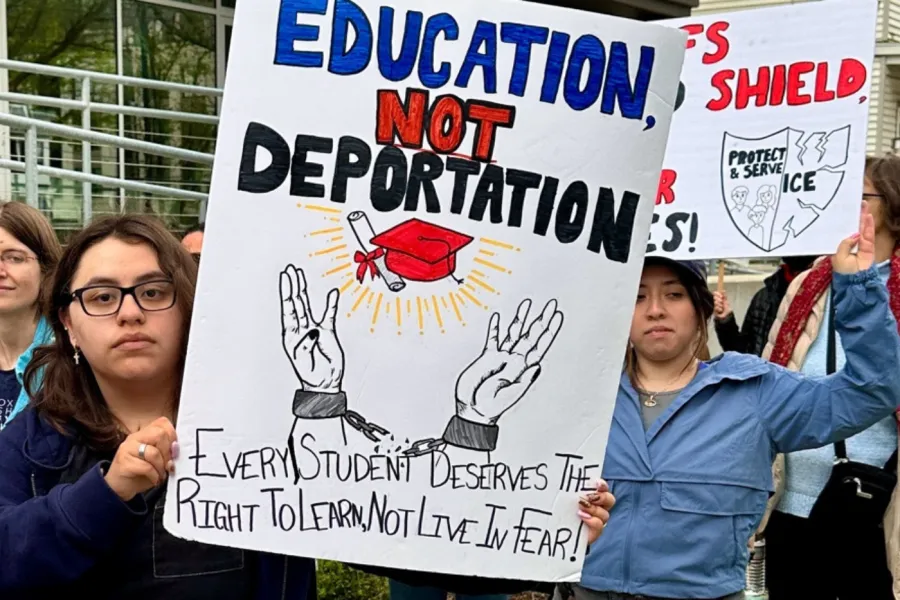 EDUCATION,
NOT
DEPORTATION
EVERY STUDENT DESERVES THE
RIGHT TO LEARN, NOT LIVE IN FEAR!
SHIELD,
PROTECT
& SERVE
ICE